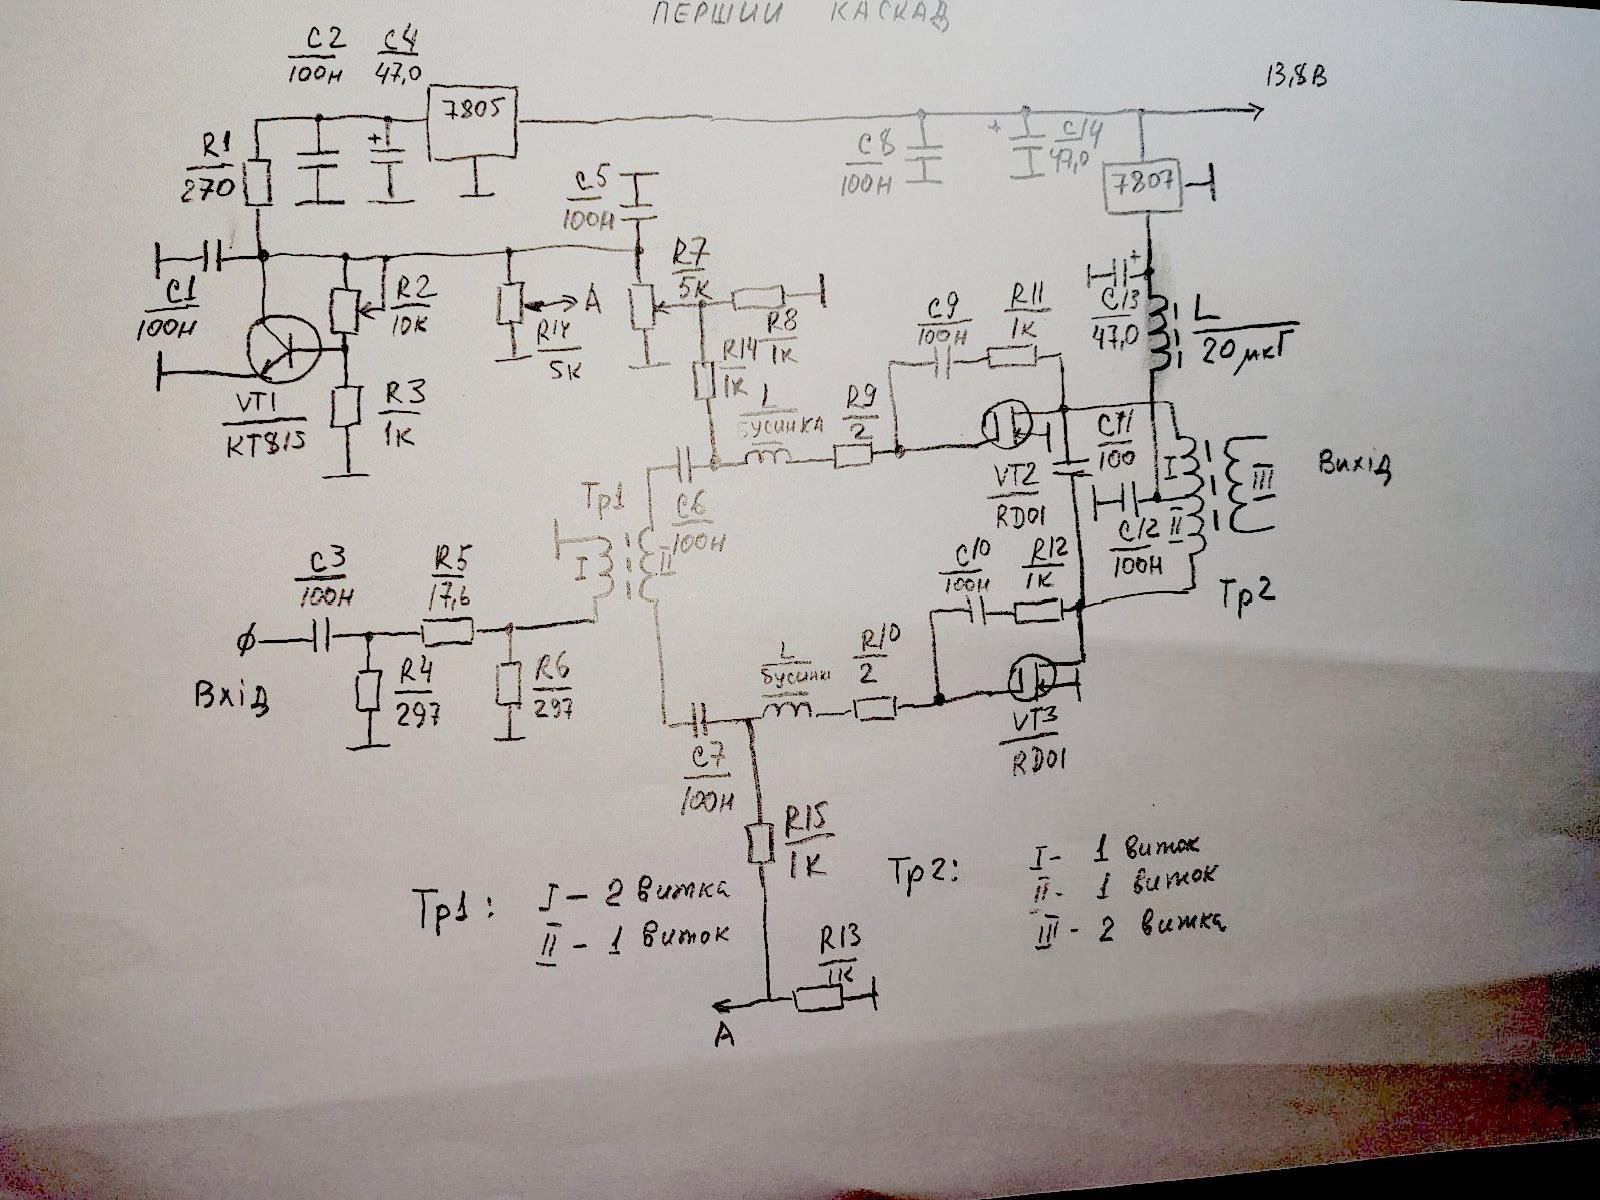 ПЕРШИЙ КАСКАД
C2
100н
C4
47,0
7805
13,8В
R1
270
C5
100н
C8
100н
+
C14
47,0
7807
+
C1
100н
R2
10к
A
R14
5к
R7
5к
R8
1к
R14
1к
C9
100н
R11
1к
C13
47,0
+
L
20мкГ
VT1
КТ815
R3
1к
L
БУСИНКА
R9
2
VT2
RD01
C11
100
I
II
III
Вихід
Тр1
C6
100н
I
II
C12
100н
Тр2
C3
100н
R5
17,6
C10
100н
R12
1к
Вхід
R4
297
R6
297
L
Бусинки
R10
2
C7
100н
VT3
RD01
R15
1к
Тр1:
I – 2 витка
II – 1 виток
Тр2:
I – 1 виток
II – 1 виток
III – 2 витка
R13
1к
A